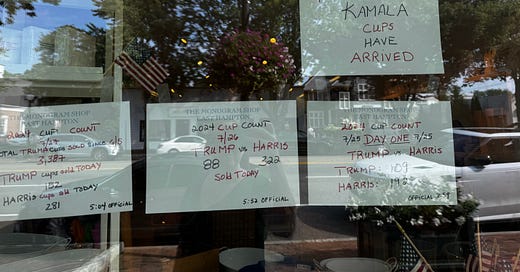 KAMALA
CUPS
HAVE
ARRIVED
THE MONOGRAM SHOP
EAST HAMPTON
2024 CUP COUNT
TOTAL TRUMP CUPS SOLD SINCE
3,387
TRUMP CUPS SOLD TODAY
152
HARRIS CUPS sold TODAY
281 5:04 OFFICIAL
THE MONOGRAM SHOP
EAST HAMPTON
2024 CUP COUNT
7/26
TRUMP vs HARRIS
88 322
SOLD TODAY
5:52 OFFICIAL
THE MONOGRAM SHOP
EAST HAMPTON
2024 CUP COUNT
7/25 DAY ONE 7/25
TRUMP vs HARRIS
TRUMP:
HARRIS:
OFFICIAL